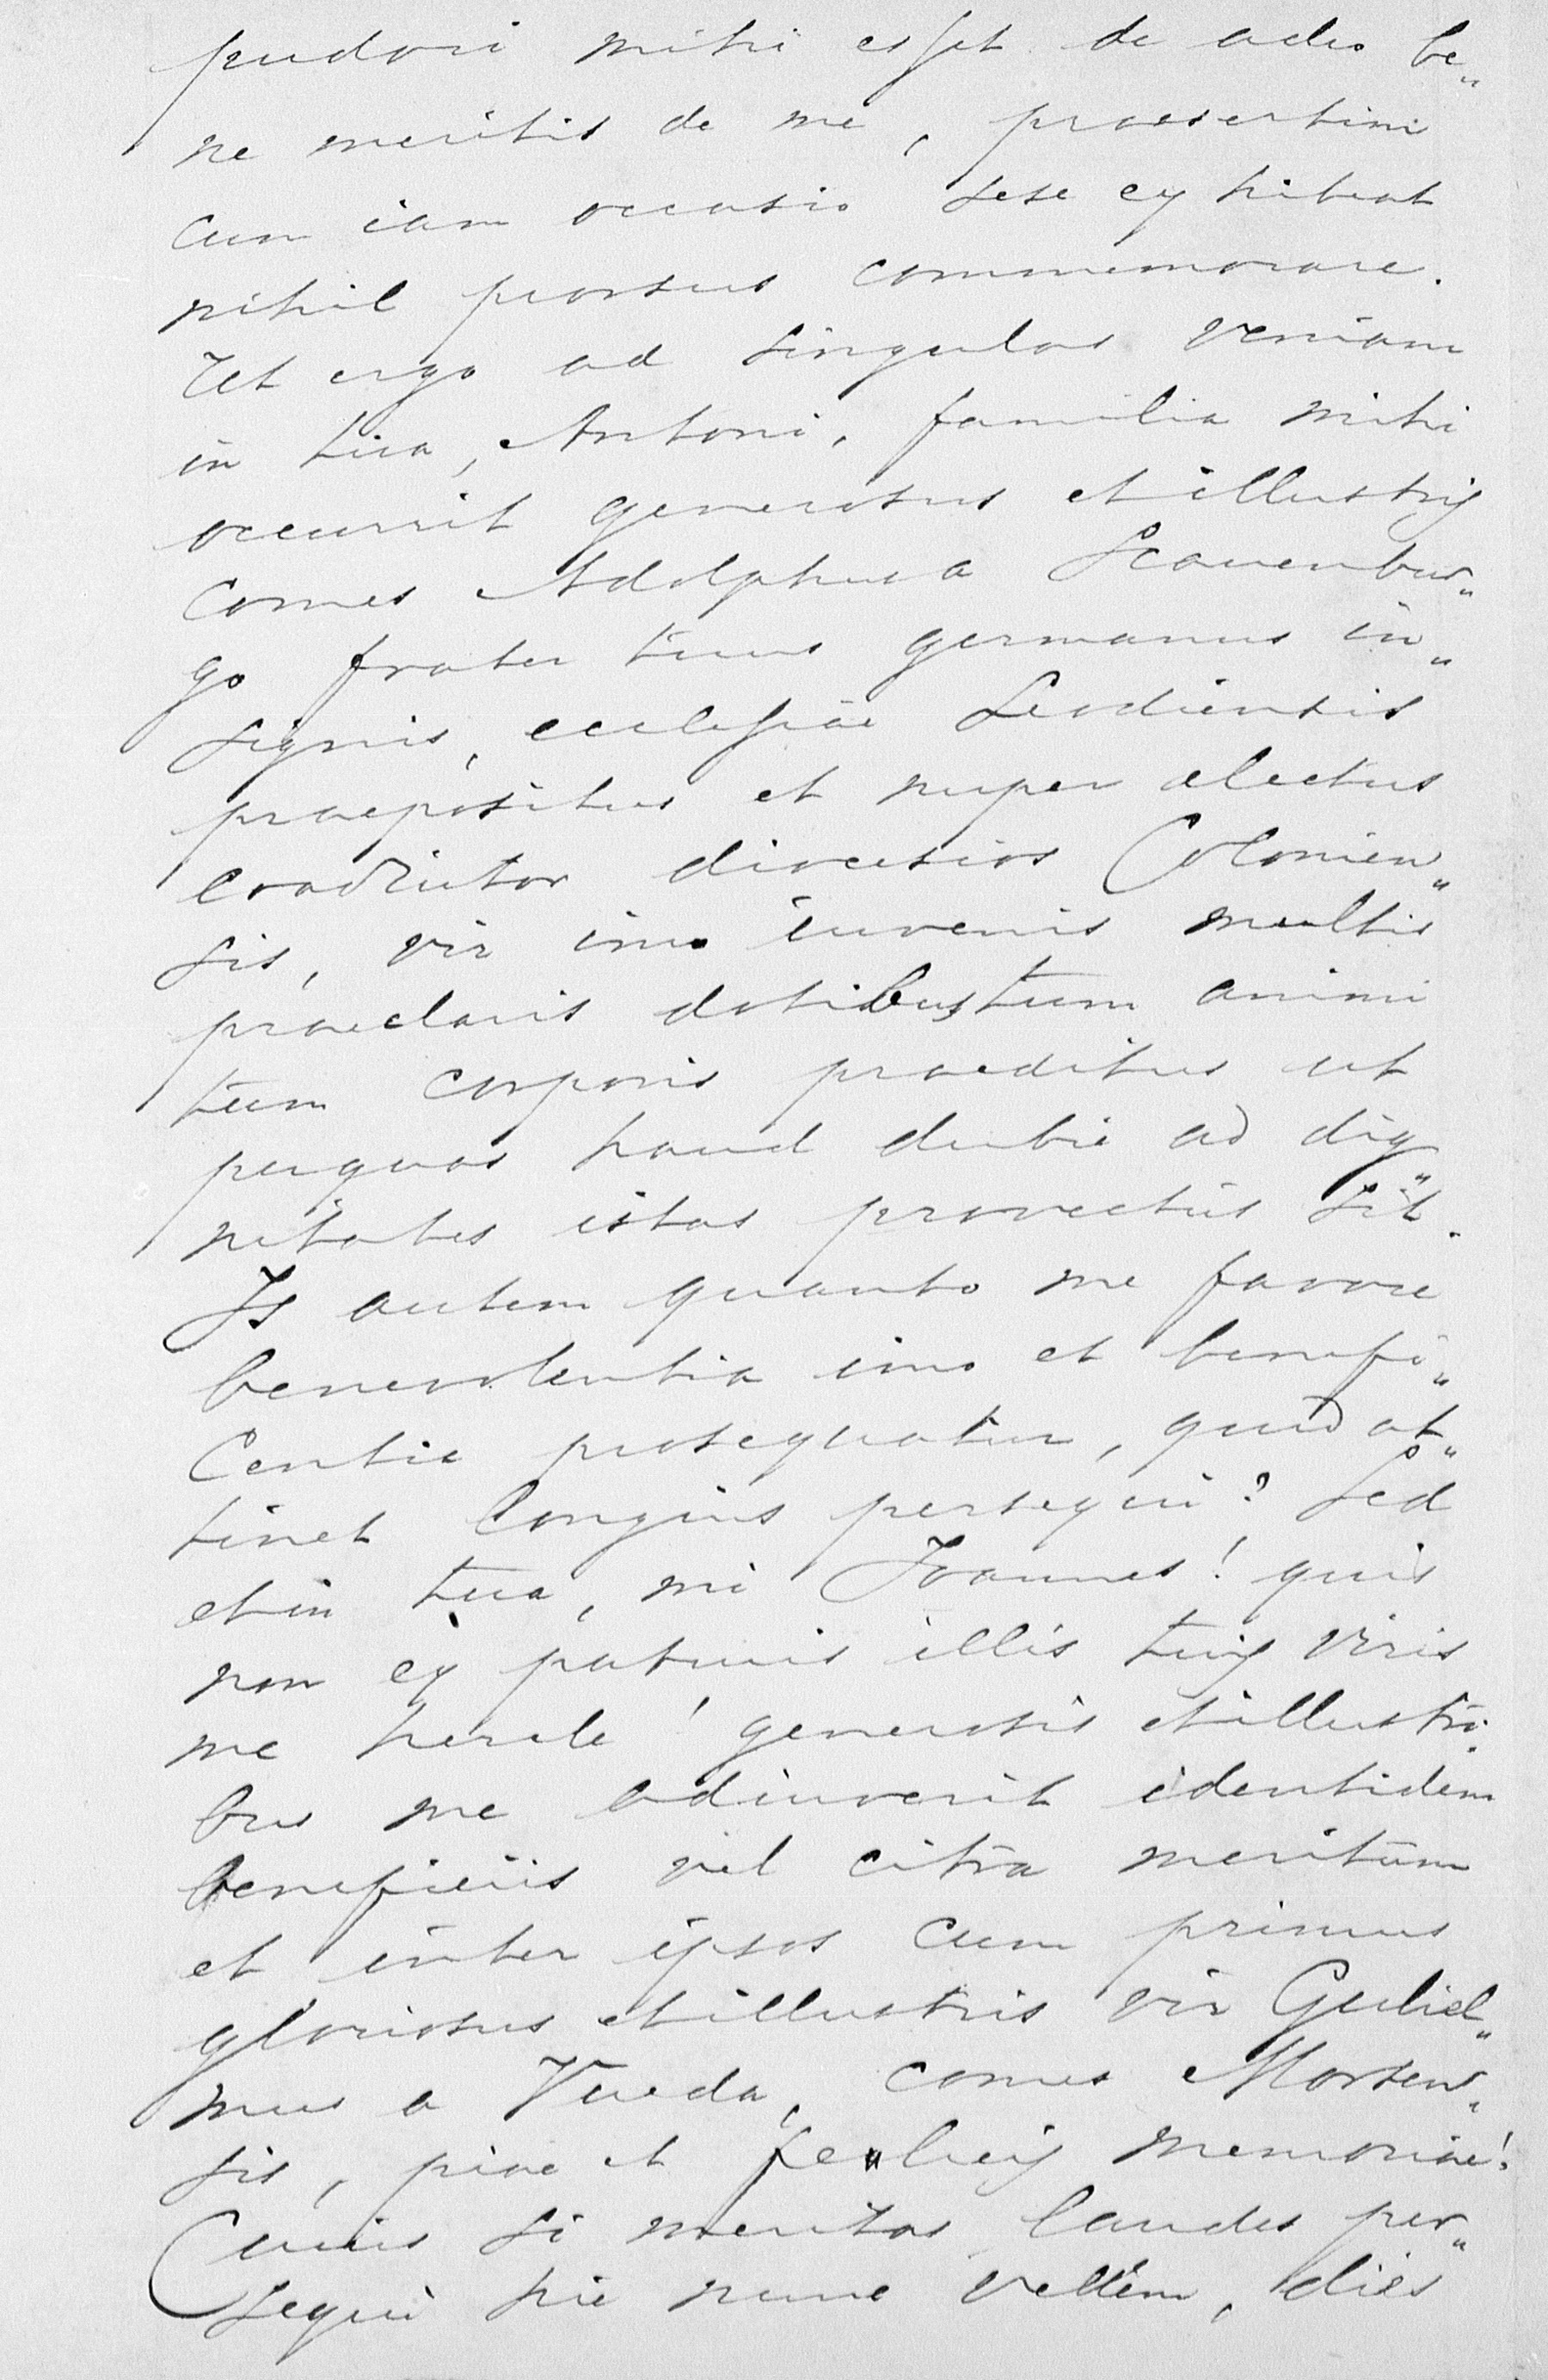 pudori mihi esset de adeo be„
ne meritis de me, praesertim
cum iam occasio sese exhibeat
nihil prorsus commemorare.
Ut ergo ad singulos veniam
in tua, Antoni, familia mihi
occurrit generosus et illustris
comes Adolphus a Scauenbur„
go frater tuus germanus in„
signis, ecclesiae Leodiensis
praepositus et nuper electus
coadiutor dioecesios Colonien„
sis, vir imo iuvenis multis
praeclaris dotibus, tum animi
tum corporis praeditus ut
perquas haud dubie ad dig„
nitates istas provectus sit.
Is autem quanto me favore
benevolentia imo et benefi„
centia prosequatur, quid at„
tinet longius persequi? Sed
et in tua, mi Joannes! quis
non ex patruis illis tuis viris
me hercle! generosis et illustri„
bus me adiuverit identidem
beneficiis vel citra meritum
et inter ipsos cum primus
gloriosus et illustris vir Guliel„
mus a Vueda, comes Morsen„
sis, piae et felicis memoriae!
Cuius si meritas laudes per„
sequi hic nunc vellem, dies